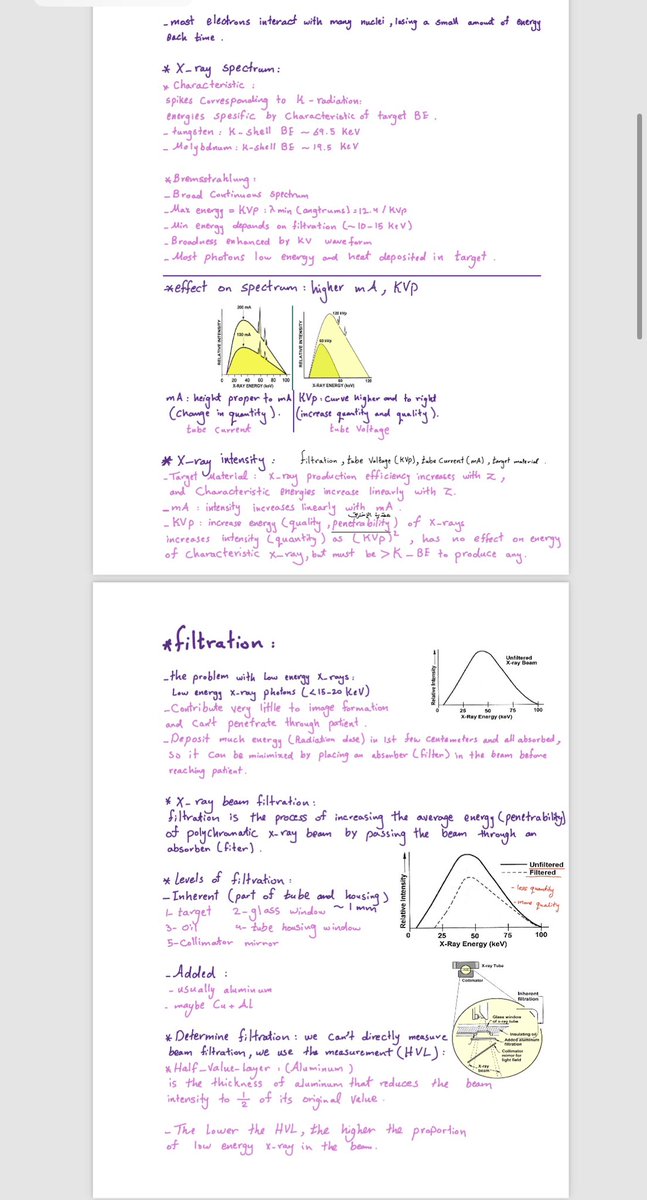 - most electrons interact with many nuclei, losing a small amount of energy
each time.
* X-ray spectrum:
* Characteristic:
spikes Corresponding to K-radiation:
energies spesific by characteristic of target BE.
- tungsten: K-shell BE ~ 69.5 KeV
- Molybdnum: K-shell BE ~ 19.5 KeV
* Bremsstrahlung:
- Broad Continuous spectrum
- Max energy = KVp: λ min (angtrums) = 12.4 / KVp
- Min energy depends on filtration (~10-15 KeV)
- Broadness enhanced by KV waveform
- Most photons low energy and heat deposited in target.
* effect on spectrum: higher mA, KVp
RELATIVE INTENSITY
200 mA
100 mA
0 20 40 60 80 100
X-RAY ENERGY (keV)
RELATIVE INTENSITY
120 kVp
60 kVp
60 120
X-RAY ENERGY (keV)
mA: height proper to mA
(change in quantity).
tube current
KVp: Curve higher and to right
(increase quantity and quality).
tube Voltage
* X-ray intensity: filtration, tube Voltage (KVp), tube Current (mA), target material.
- Target Material: X-ray production efficiency increases with Z,
and Characteristic energies increase linearly with Z.
- mA: intensity increases linearly with mA.
- KVp: increase energy (quality, penetrability) of X-rays
increases intensity (quantity) as (KVp)², has no effect on energy
of characteristic x-ray, but must be > K-BE to produce any.
* filtration:
- the problem with Low energy X-rays:
Low energy x-ray photons (<15-20 KeV)
- Contribute very little to image formation
and can't penetrate through patient.
- Deposit much energy (Radiation dose) in 1st few centemeters and all absorbed,
so it can be minimized by placing an absorber (filter) in the beam before
reaching patient.
Relative Intensity
Unfiltered
X-ray Beam
25 50 75 100
X-Ray Energy (keV)
* X-ray beam filtration:
filtration is the process of increasing the average energy (penetrability)
of polychromatic x-ray beam by passing the beam through an
absorber (fiter).
* Levels of filtration:
- Inherent (part of tube and housing)
~ 1 mm
1- target 2- glass window
3- oil 4- tube housing window
5- Collimator mirror
Relative Intensity
Unfiltered
Filtered
- less quantity
- more quality
25 50 75 100
X-Ray Energy (keV)
- Added:
- usually aluminum
- maybe Cu + AL
X-ray Tube
Collimator
Inherent
filtration
Glass window
of x-ray tube
Insulating oil
Added aluminum
filtration
Collimator
mirror for
light field
X-ray
beam
* Determine filtration: we can't directly measure
beam filtration, we use the measurement (HVL):
* Half-Value-Layer: (Aluminum)
is the thickness of aluminum that reduces the beam
intensity to 1/2 of its original value.
- The Lower the HVL, the higher the proportion
of low energy x-ray in the beam.